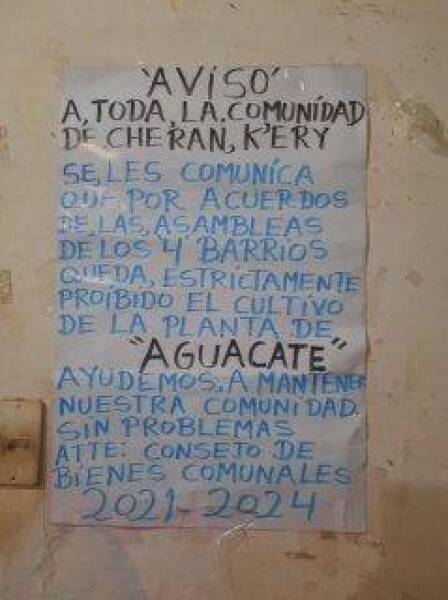 'AVISO'
A, TODA, LA. COMUNIDAD
DE CHERAN, K'ERY
SE, LES COMUNICA
QUE POR ACUERDOS
DE, LAS, ASAMBLEAS
DE LOS 4 BARRIOS
QUEDA, ESTRICTAMENTE
PROIBIDO EL CULTIVO
DE LA PLANTA DE
"AGUACATE"
AYUDEMOS, A MANTENER
NUESTRA COMUNIDAD
SIN PROBLEMAS
ATTE: CONSEJO DE
BIENES COMUNALES
2021-2024